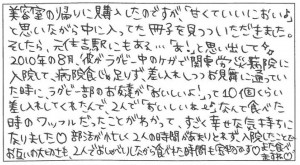 美容室の帰りに購入したのですが「甘くていいにおいよ」
と思いながら中に入ってた冊子を見つついただきました。
そしたら、元住吉駅にもある…「あ!」と思い出して
2010年の8月、彼がラグビー中のケガで関東労災病院に
入院して、病院食じゃ足りず差入れしつつお見舞に通ってい
た時に、ラグビー部のお嬢が「おいしいよ!」って10個くらい
差し入れしてくれたんで、2人で「おいしいねー」なんて食べた
時のワッフルだった、ことがわかって、すごく幸せな気持ちに
なりました♡部活が忙しく2人の時間があまりとれず、入院したことから
お互いの大切さも、2人でおしゃべりしながら食べた時間も宝物です♡また食べ